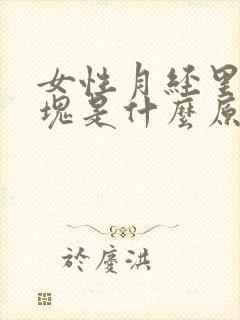 女性月经里
塊是什麼原
於慶洪